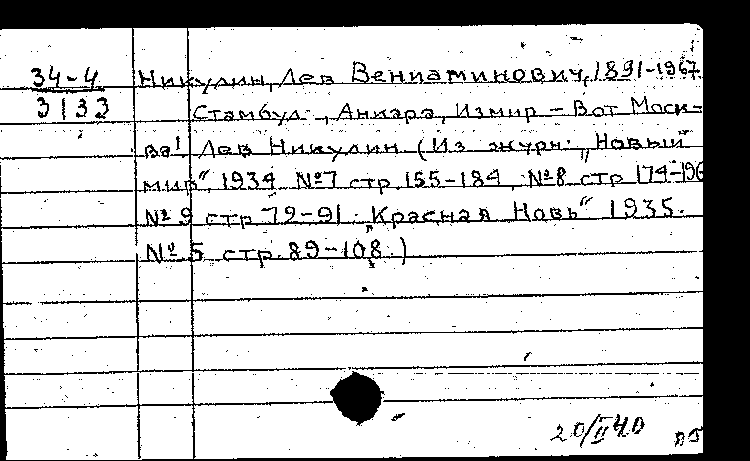 34-4
3133
Никулин, Лев Вениаминович, 1891-1967.
Стамбул, Анкара, Измир - Вот Моск-
ва! Лев Никулин (Из журн: „Новый
мир", 1934 №7 стр. 155-184, №8 стр 174-196
№9 стр 79-91. „Красная Новь" 1935.
№5 стр. 89-108.)
20/II 40